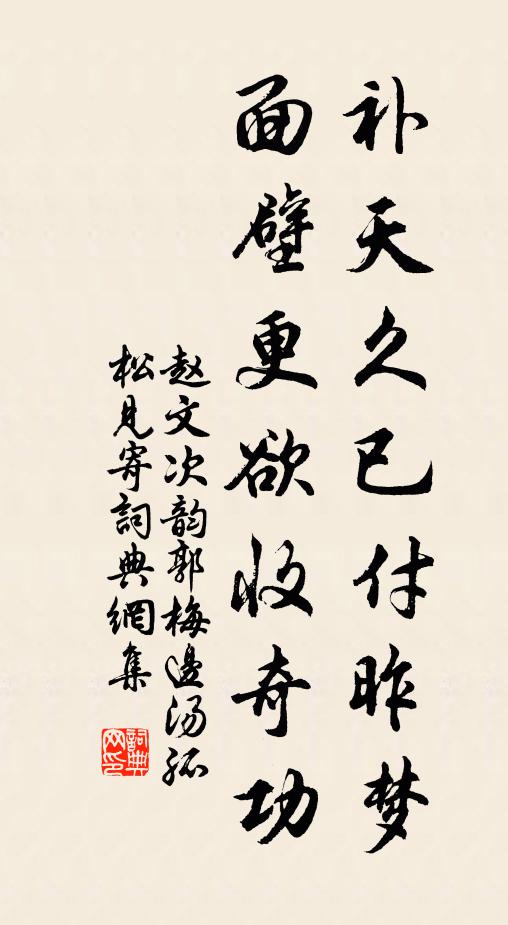 补天久已付昨梦
面壁更欲收奇功
赵文次韵郭梅边汤孤
松见寄詞典網集
詞典网印